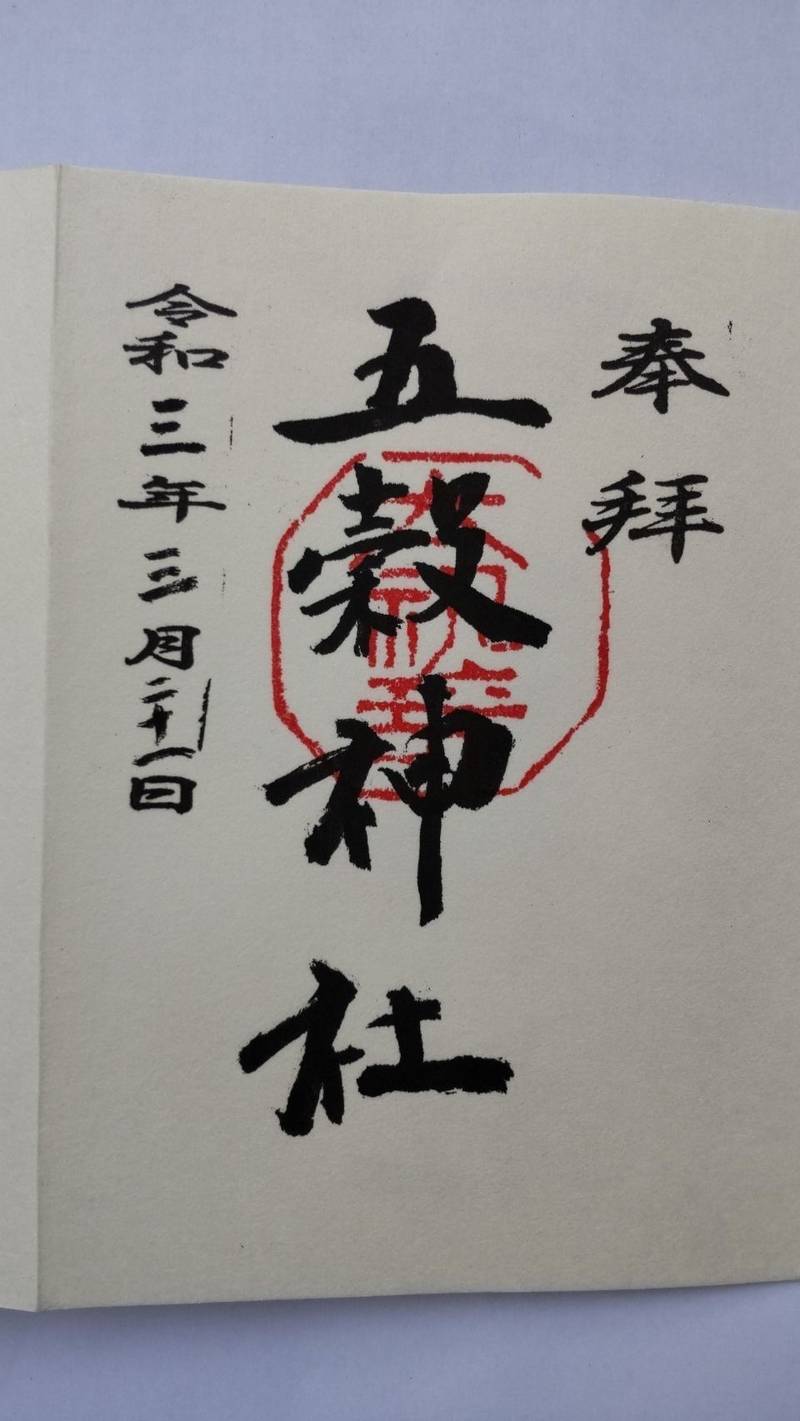 奉拝
五穀神社
令和三年三月二十一日